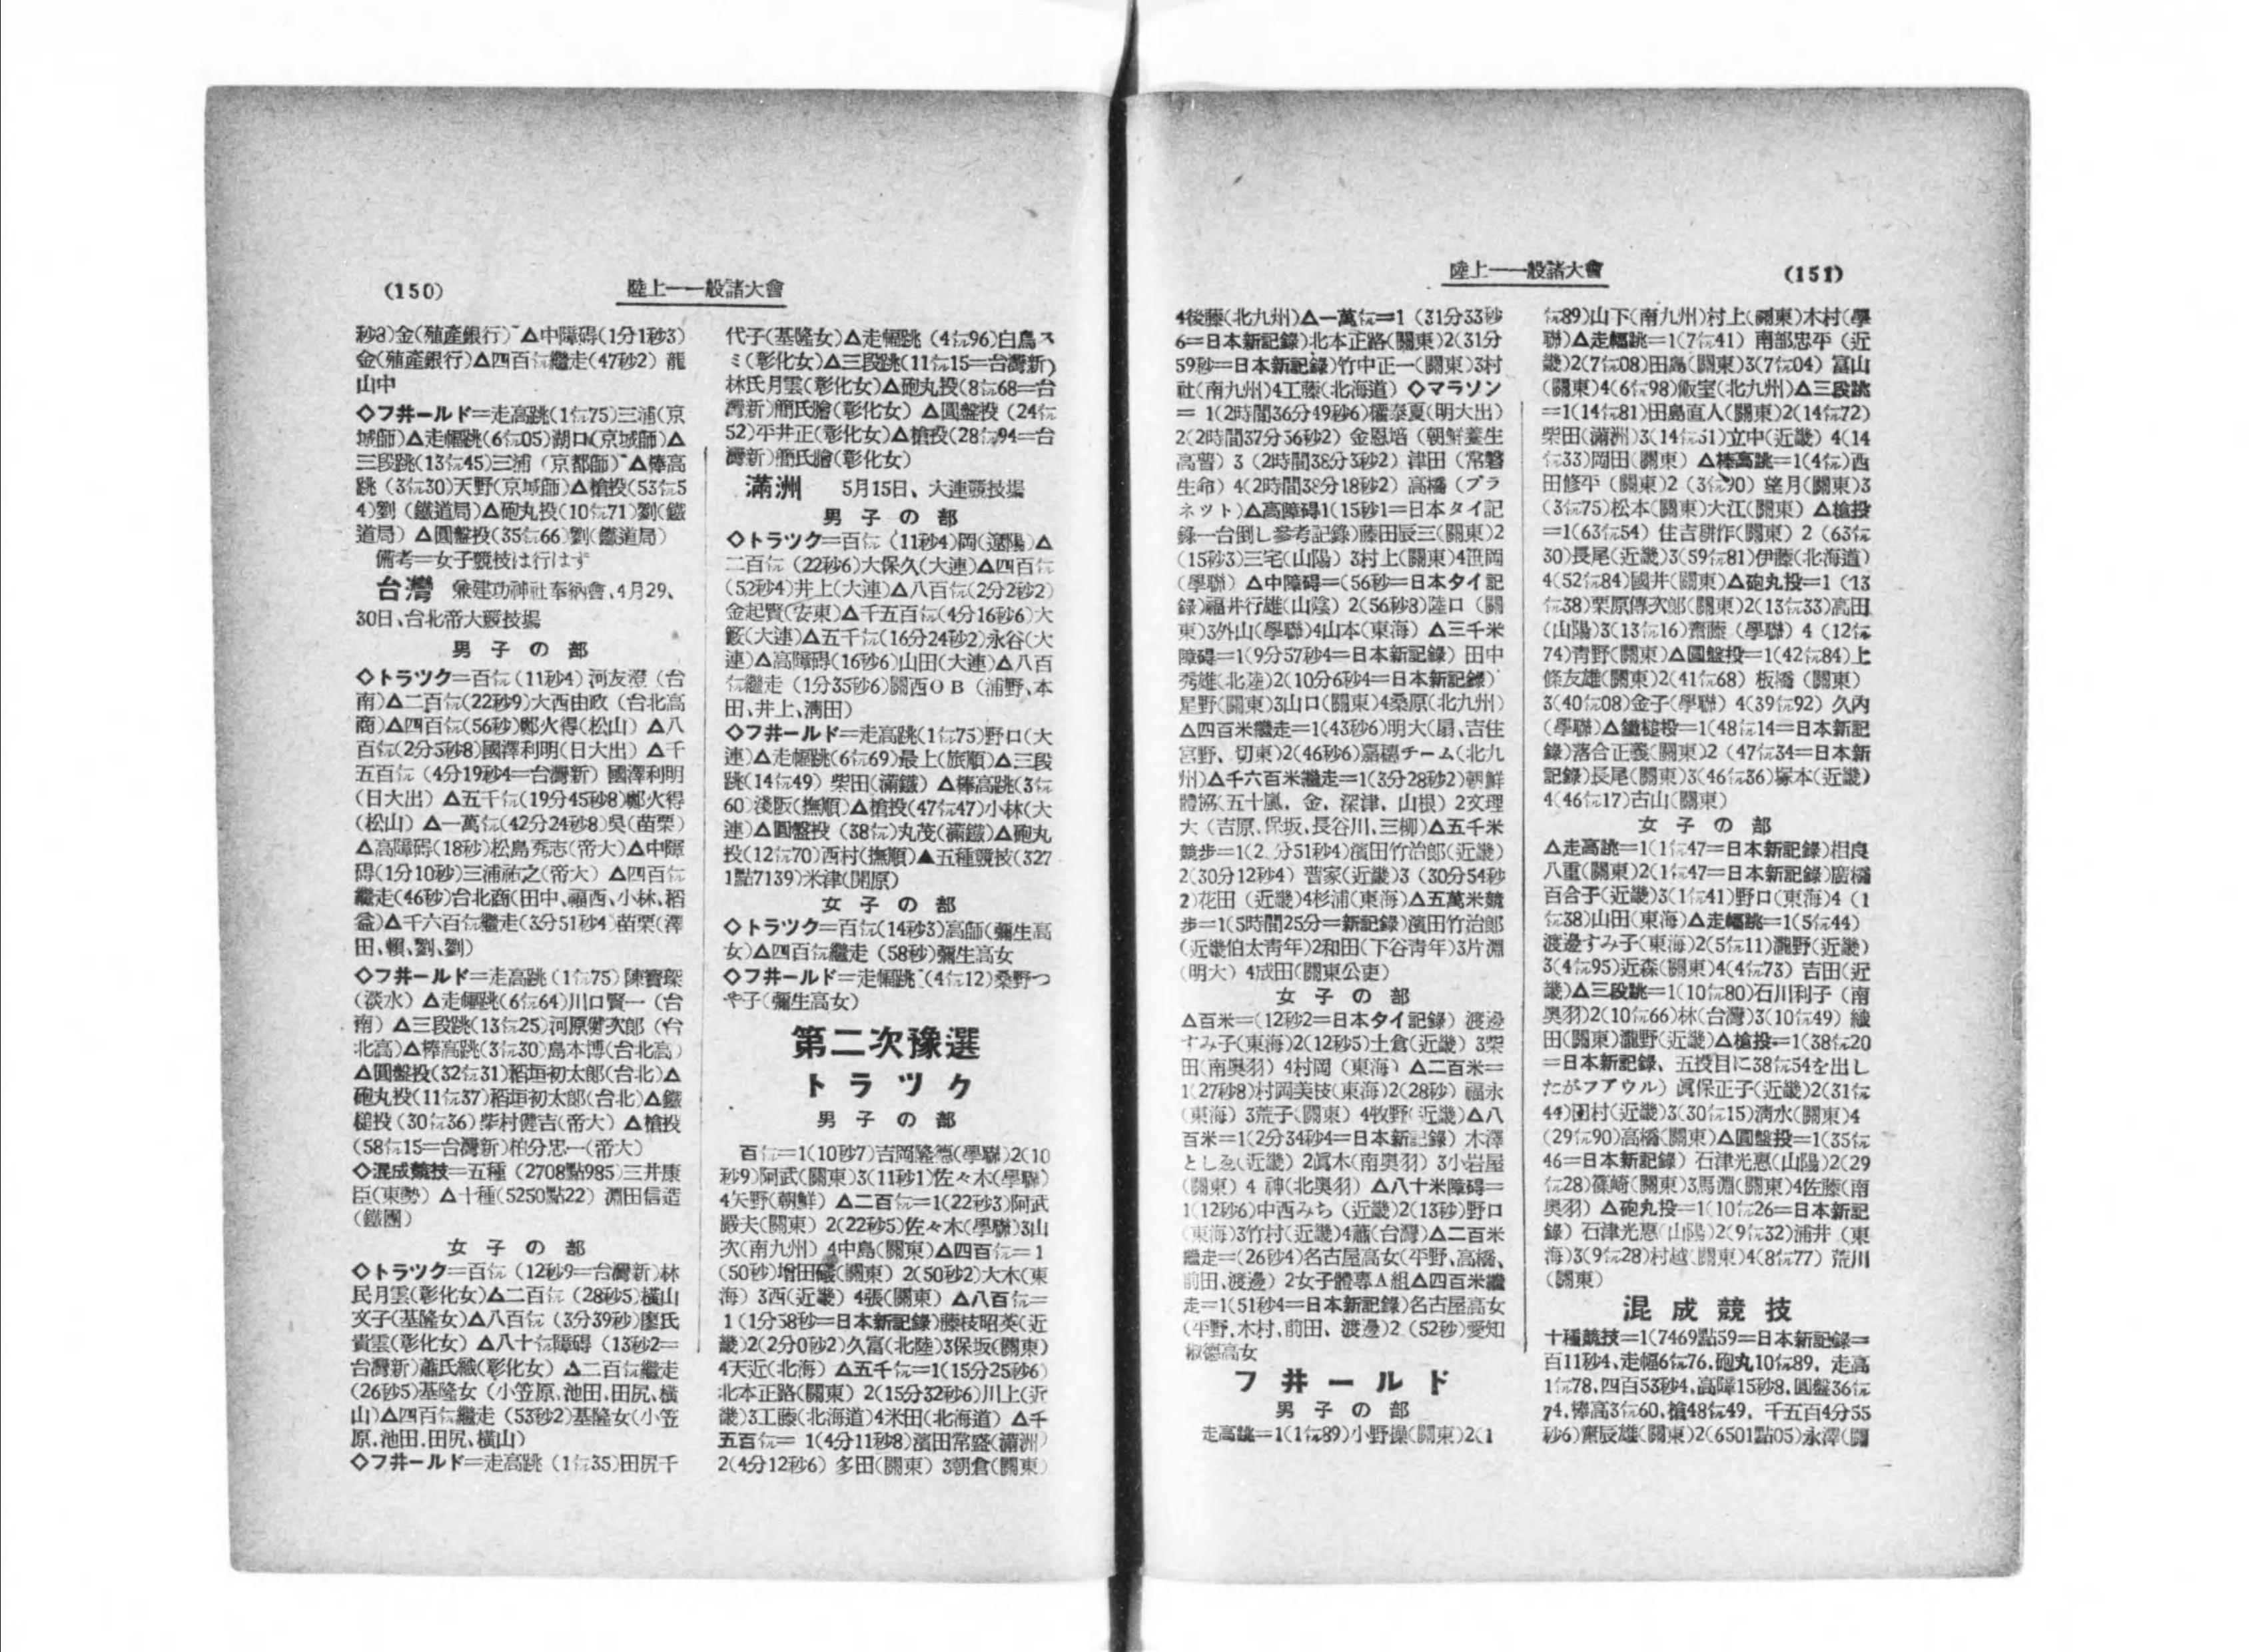 (150)
陸上——一般諸大會
秒8)金(殖產銀行) △中障碍(1分1秒3)
金(殖產銀行)△四百㍍繼走(47秒2) 龍
山中
◇フ井ールド=走高跳(1㍍75)三浦(京
城師)△走幅跳(6㍍05)湖口(京城師)△
三段跳(13㍍45)三浦 (京都師) △棒高
跳 (3㍍30)天野(京城師)△槍投(53㍍5
4)劉 (鐵道局)△砲丸投(10㍍71)劉(鐵
道局) △圓盤投(35㍍66)劉(鐵道局)
備考=女子競技は行はず
台灣 兼建功神社奉納會、4月29、
30日、台北帝大競技場
男子の部
◇トラツク=百㍍ (11秒4) 河友澄 (台
南)△二百㍍(22秒9)大西由政 (台北高
商)△四百㍍(56秒)鄭火得(松山) △八
百㍍(2分5秒8)國澤利明(日大出) △千
五百㍍ (4分19秒4=台灣新) 國澤利明
(日大出) △五千㍍(19分45秒8)鄭火得
(松山) △一萬㍍(42分24秒8)吳(苗栗)
△高障碍(18秒)松島秀志(帝大)△中障
碍(1分10秒)三浦祐之(帝大) △四百㍍
繼走(46秒)台北商(田中、福西、小林、稻
益)△千六百㍍繼走(3分51秒4)苗栗(澤
田、賴、劉、劉)
◇フ井ールド=走高跳 (1㍍75) 陳寶琛
(淡水) △走幅跳(6㍍64)川口賢一 (台
南) △三段跳(13㍍25)河原勞次郎 (台
北高)△棒高跳(3㍍30)島本博(台北高)
△圓盤投(32㍍31)稻垣初太郎(台北)△
砲丸投(11㍍37)稻垣初太郎(台北)△鐵
槌投 (30㍍36) 柴村健吉(帝大) △槍投
(58㍍15=台灣新)柏分忠一(帝大)
◇混成競技=五種 (2708點985)三井康
臣(東勢) △十種(5250點22) 淵田信造
(鐵團)
女子の部
◇トラツク=百㍍ (12秒9=台灣新)林
民月雲(彰化女)△二百㍍ (28秒5)橫山
文子(基隆女)△八百㍍ (3分39秒)廖氏
貴雲(彰化女) △八十㍍障碍 (13秒2=
台灣新)蕭氏織(彰化女) △二百㍍繼走
(26秒5)基隆女 (小笠原、池田、田尻、橫
山)△四百㍍繼走 (53秒2)基隆女(小笠
原、池田、田尻、橫山)
◇フ井ールド=走高跳 (1㍍35)田尻千
代子(基隆女)△走幅跳 (4㍍96)白鳥ス
ミ(彰化女)△三段跳(11㍍15=台灣新)
林氏月雲(彰化女)△砲丸投(8㍍68=台
灣新)簡氏膾(彰化女) △圓盤投 (24㍍
52)平井正(彰化女)△槍投(28㍍94=台
灣新)簡氏膾(彰化女)
滿洲 5月15日、大連競技場
男子の部
◇トラツク=百㍍ (11秒4)岡(遼陽)△
二百㍍ (22秒6)大保久(大連)△四百㍍
(52秒4)井上(大連)△八百㍍(2分2秒2)
金起賢(安東)△千五百㍍(4分16秒6)大
籔(大連)△五千㍍(16分24秒2)永谷(大
連)△高障碍(16秒6)山田(大連)△八百
㍍繼走 (1分35秒6)關西OB (浦野、本
田、井上、濟田)
◇フ井ールド=走高跳(1㍍75)野口(大
連)△走幅跳(6㍍69)最上(旅順)△三段
跳(14㍍49) 柴田(滿鐵) △棒高跳(3㍍
60)淺阪(撫順)△槍投(47㍍47)小林(大
連)△圓盤投 (38㍍)丸茂(滿鐵)△砲丸
投(12㍍70)西村(撫順)▲五種競技(327
1點7139)米津(開原)
女子の部
◇トラツク=百㍍(14秒3)高師(彌生高
女)△四百㍍繼走 (58秒)彌生高女
◇フ井ールド=走幅跳 (4㍍12)桑野つ
や子(彌生高女)
第二次豫選
トラツク
男子の部
百㍍=1(10秒7)吉岡隆德(學聯)2(10
秒9)阿武(關東)3(11秒1)佐々木(學聯)
4矢野(朝鮮) △二百㍍=1(22秒3)阿武
巖夫(關東) 2(22秒5)佐々木(學聯)3山
次(南九州) 4中島(關東)△四百㍍=1
(50秒)增田磯(關東) 2(50秒2)大木(東
海) 3西(近畿) 4張(關東) △八百㍍=
1 (1分58秒=日本新記錄)藤枝昭英(近
畿)2(2分0秒2)久富(北陸)3保坂(關東)
4天近(北海) △五千㍍=1(15分25秒6)
北本正路(關東) 2(15分32秒6)川上(近
畿)3工藤(北海道)4米田(北海道) △千
五百㍍= 1(4分11秒8)濱田常盛(滿洲)
2(4分12秒6) 多田(關東) 3朝倉(關東)
陸上——一般諸大會
(151)
4後藤(北九州)△一萬㍍=1 (31分33秒
6=日本新記錄)北本正路(關東)2(31分
59秒=日本新記錄)竹中正一(關東)3村
社(南九州)4工藤(北海道) ◇マラソン
= 1(2時間36分49秒6)權泰夏(明大出)
2(2時間37分56秒2) 金恩培 (朝鮮養生
高普) 3 (2時間38分3秒2) 津田 (常磐
生命) 4(2時間38分18秒2) 高橋 (プラ
ネット)△高障碍1(15秒1=日本タイ記
錄一台倒し參考記錄)藤田辰三(關東)2
(15秒3)三宅(山陽) 3村上(關東)4笹岡
(學聯) △中障碍=(56秒=日本タイ記
錄)福井行雄(山陰) 2(56秒8)陸口 (關
東)3外山(學聯)4山本(東海) △三千米
障碍=1(9分57秒4=日本新記錄) 田中
秀雄(北陸)2(10分6秒4=日本新記錄)
星野(關東)3山口(關東)4桑原(北九州)
△四百米繼走=1(43秒6)明大(扇、吉住
宮野、切東)2(46秒6)嘉穗チーム(北九
州)△千六百米繼走=1(3分28秒2)朝鮮
體協(五十嵐、金、深津、山根) 2文理
大 (吉原、保坂、長谷川、三柳)△五千米
競步=1(2 分51秒4)濱田竹治郎(近畿)
2(30分12秒4) 菅家(近畿)3 (30分54秒
2)花田 (近畿)4杉浦(東海)△五萬米競
步=1(5時間25分=新記錄)濱田竹治郎
(近畿伯太靑年)2和田(下谷靑年)3片淵
(明大) 4成田(關東公吏)
女子の部
△百米=(12秒2=日本タイ記錄) 渡邊
すみ子(東海)2(12秒5)土倉(近畿) 3柴
田(南奧羽) 4村岡 (東海) △二百米=
1(27秒8)村岡美枝(東海)2(28秒) 福永
(東海) 3荒子(關東) 4牧野(近畿)△八
百米=1(2分34秒4=日本新記錄) 木澤
としゑ(近畿) 2眞木(南奧羽) 3小岩屋
(關東) 4 神(北奧羽) △八十米障碍=
1(12秒6)中西みち (近畿)2(13秒)野口
(東海)3竹村(近畿)4蕭(台灣)△二百米
繼走=(26秒4)名古屋高女(平野、高橋、
前田、渡邊) 2女子體專A組△四百米繼
走=1(51秒4=日本新記錄)名古屋高女
(平野、木村、前田、渡邊)2 (52秒)愛知
淑德高女
フ井ールド
男子の部
走高跳=1(1㍍89)小野操(關東)2(1
㍍89)山下(南九州)村上(關東)木村(學
聯)△走幅跳=1(7㍍41) 南部忠平 (近
畿)2(7㍍08)田島(關東)3(7㍍04) 富山
(關東)4(6㍍98)飯室(北九州)△三段跳
=1(14㍍81)田島直人(關東)2(14㍍72)
柴田(滿洲)3(14㍍51)立中(近畿) 4(14
㍍33)岡田(關東) △棒高跳=1(4㍍)西
田修平 (關東)2 (3㍍90) 望月(關東)3
(3㍍75)松本(關東)大江(關東) △槍投
=1(63㍍54) 住吉耕作(關東) 2 (63㍍
30)長尾(近畿)3(59㍍81)伊藤(北海道)
4(52㍍84)國井(關東)△砲丸投=1 (13
㍍38)栗原傳次郎(關東)2(13㍍33)高田
(山陽)3(13㍍16)齋藤 (學聯) 4 (12㍍
74)青野(關東)△圓盤投=1(42㍍84)上
條友雄(關東)2(41㍍68) 板橋 (關東)
3(40㍍08)金子(學聯) 4(39㍍92) 久內
(學聯)△鐵槌投=1(48㍍14=日本新記
錄)落合正義(關東)2 (47㍍34=日本新
記錄)長尾(關東)3(46㍍36)塚本(近畿)
4(46㍍17)古山(關東)
女子の部
△走高跳=1(1㍍47=日本新記錄)相良
八重(關東)2(1㍍47=日本新記錄)廣橋
百合子(近畿)3(1㍍41)野口(東海)4 (1
㍍38)山田(東海)△走幅跳=1(5㍍44)
渡邊すみ子(東海)2(5㍍11)瀧野(近畿)
3(4㍍95)近森(關東)4(4㍍73) 吉田(近
畿)△三段跳=1(10㍍80)石川利子 (南
奧羽)2(10㍍66)林(台灣)3(10㍍49) 織
田(關東)瀧野(近畿)△槍投=1(38㍍20
=日本新記錄、五投目に38㍍54を出し
たがフアウル) 眞保正子(近畿)2(31㍍
44)田村(近畿)3(30㍍15)淸水(關東)4
(29㍍90)高橋(關東)△圓盤投=1(35㍍
46=日本新記錄) 石津光惠(山陽)2(29
㍍28)篠崎(關東)3馬淵(關東)4佐藤(南
奧羽) △砲丸投=1(10㍍26=日本新記
錄) 石津光惠(山陽)2(9㍍32)浦井 (東
海)3(9㍍28)村越(關東)4(8㍍77) 荒川
(關東)
混成競技
十種競技=1(7469點59=日本新記錄=
百11秒4、走幅6㍍76、砲丸10㍍89、走高
1㍍78、四百53秒4、高障15秒8、圓盤36㍍
74、棒高3㍍60、槍48㍍49、千五百4分55
秒6)齊辰雄(關東)2(6501點05)永澤(關